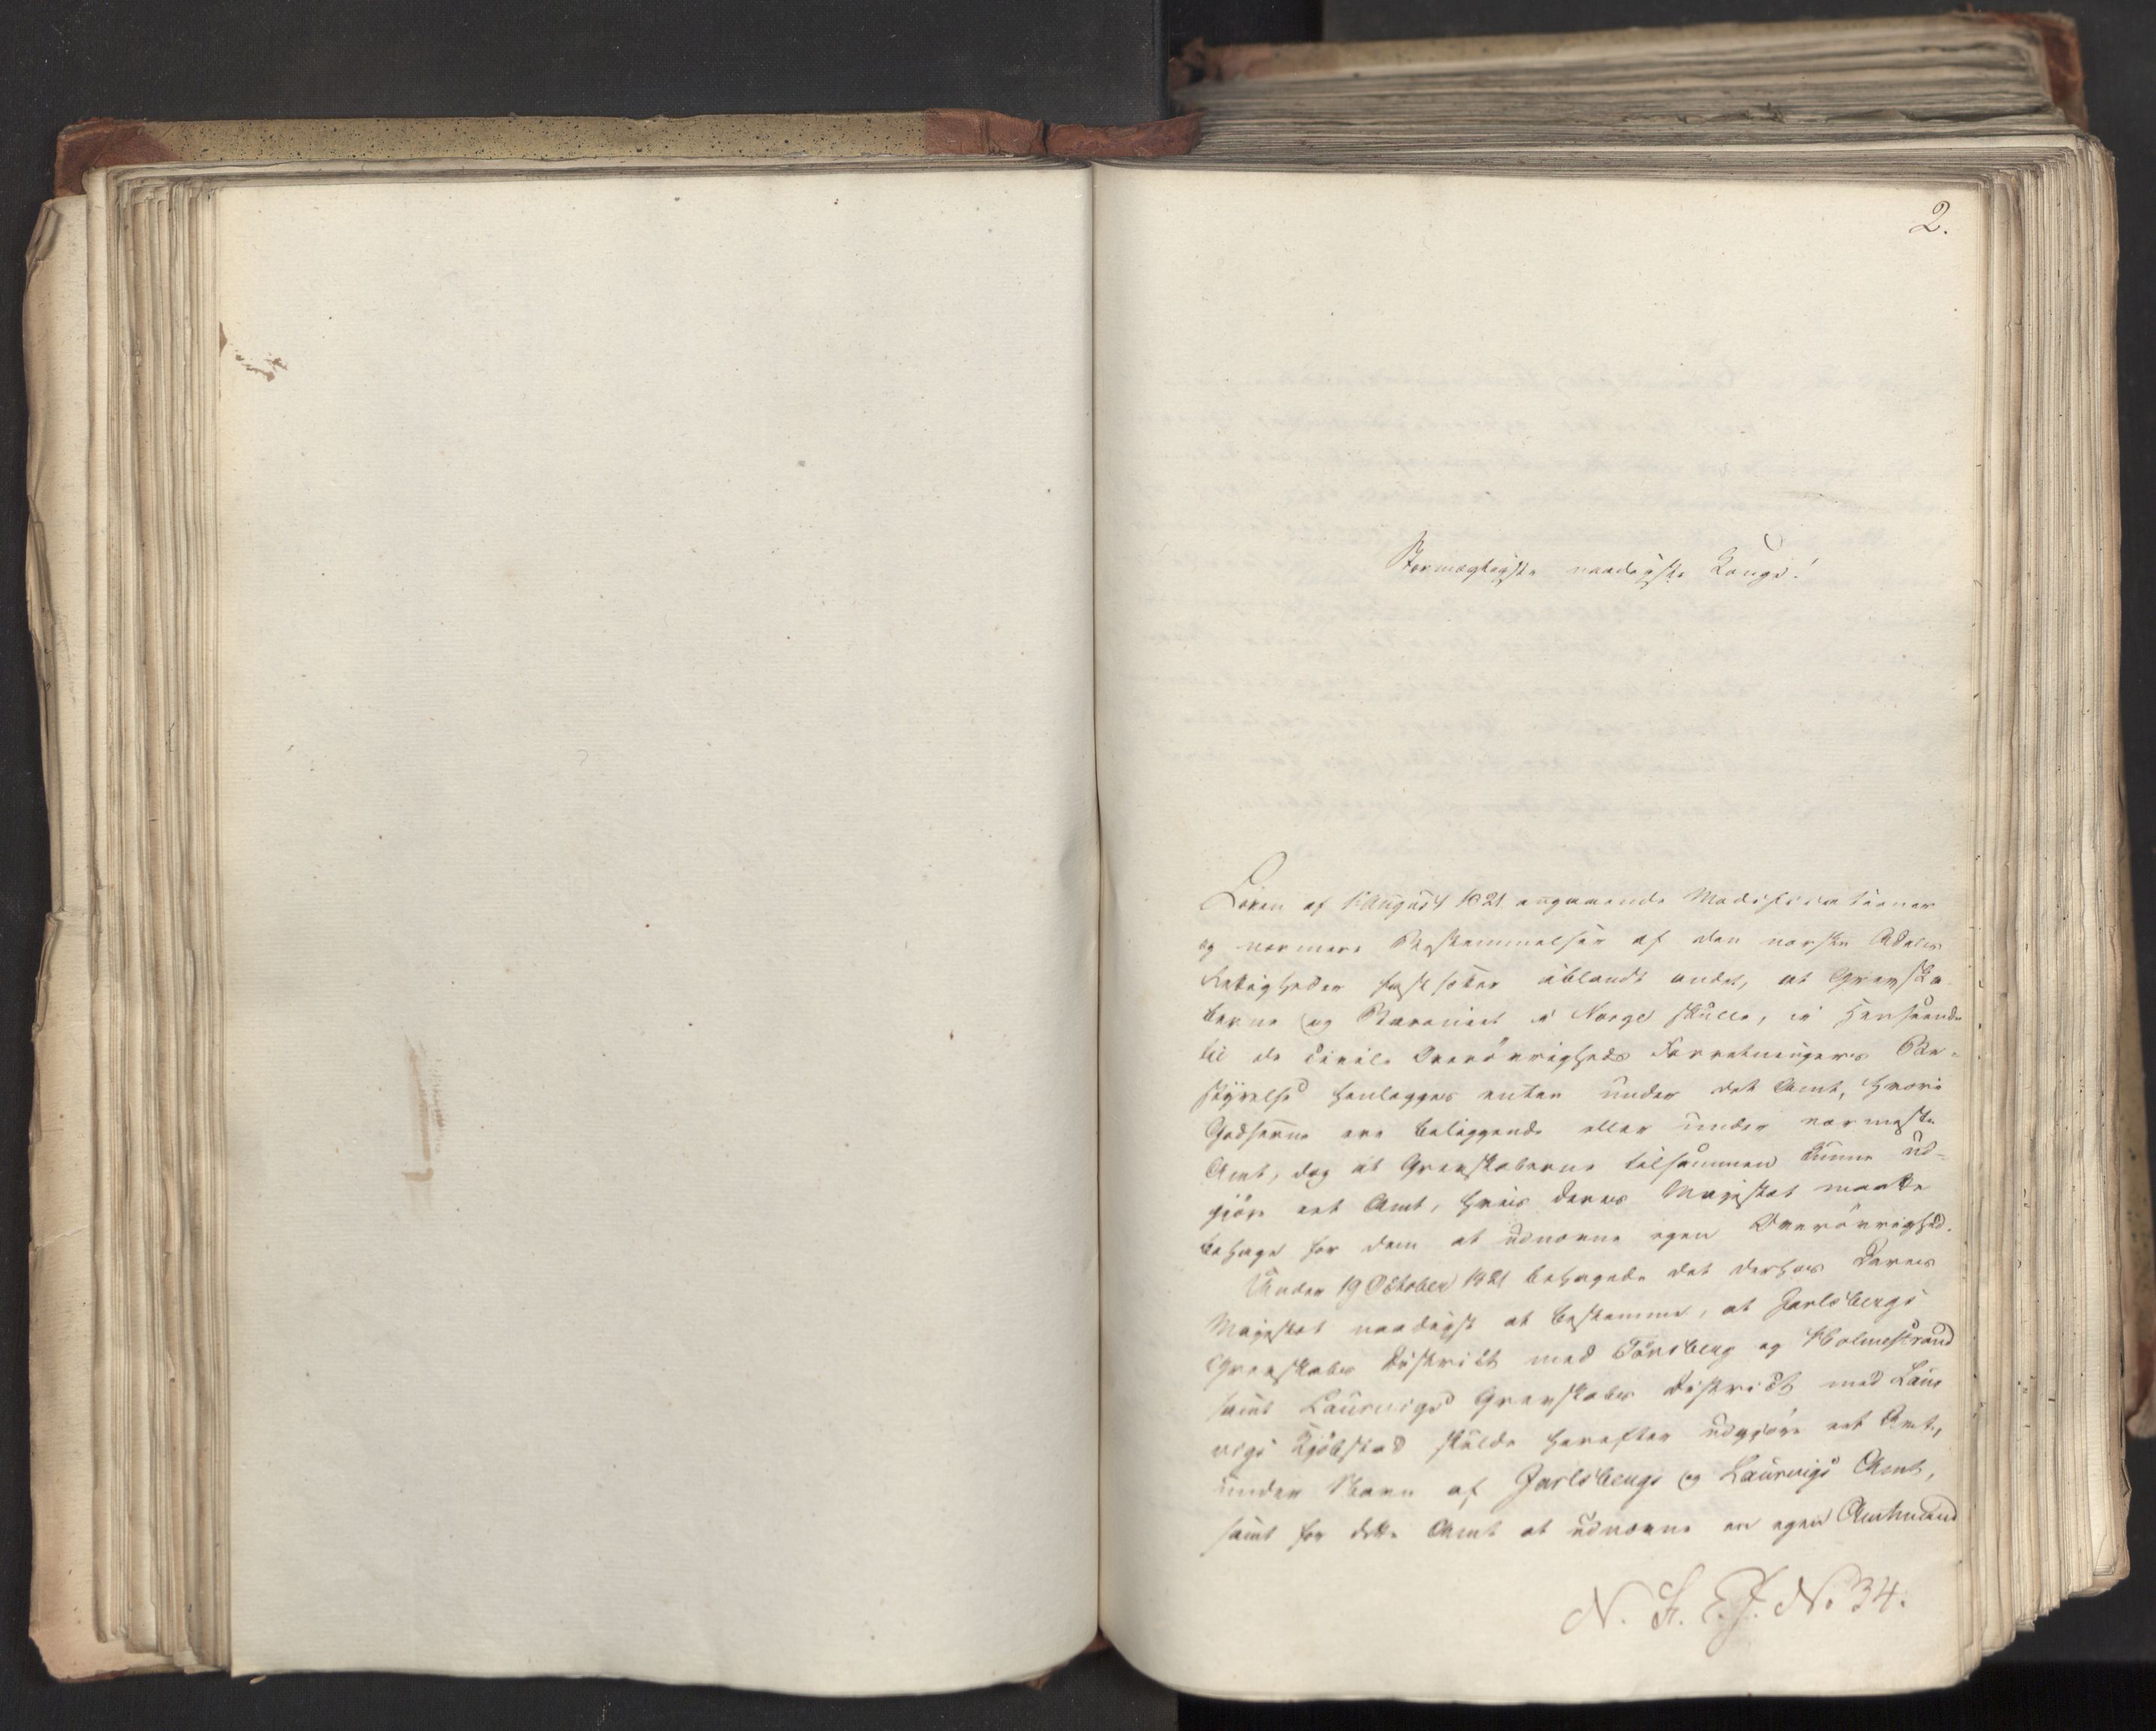 2.
Stormægtigste naadigste Konge!
Loven af 1 August 1821 angaaende Modificationer
og nærmere Bestemmelser af den norske Adels
Rettigheder fastsætter iblandt andet, at Grevska-
berne og Baroniet i Norge skulle, i Henseende
til de civile Overøvrigheds Forretningers Be-
styrelse henlægges enten under det Amt, hvori
Godserne ere beliggende eller under nærmeste
Amt, dog at Grevskaberne tilsammen kunne ud-
gjøre eet Amt, hvis Deres Majestæt maatte
behage for dem at udnævne egen Overøvrighed.
Under 19 October 1821 behagede det derhos Deres
Majestæt naadigst at bestemme, at Jarlsbergs
Grevskabs District med Tönsberg og Holmestrand
samt Laurvigs Grevskabs District med Laur
vigs Kjöbstad skulde herefter udgjøre eet Amt,
under Navn af Jarlsbergs og Laurvigs Amt,
samt for dette Amt at udnævne en egen Amtmand
N. St. E. J. No 34.